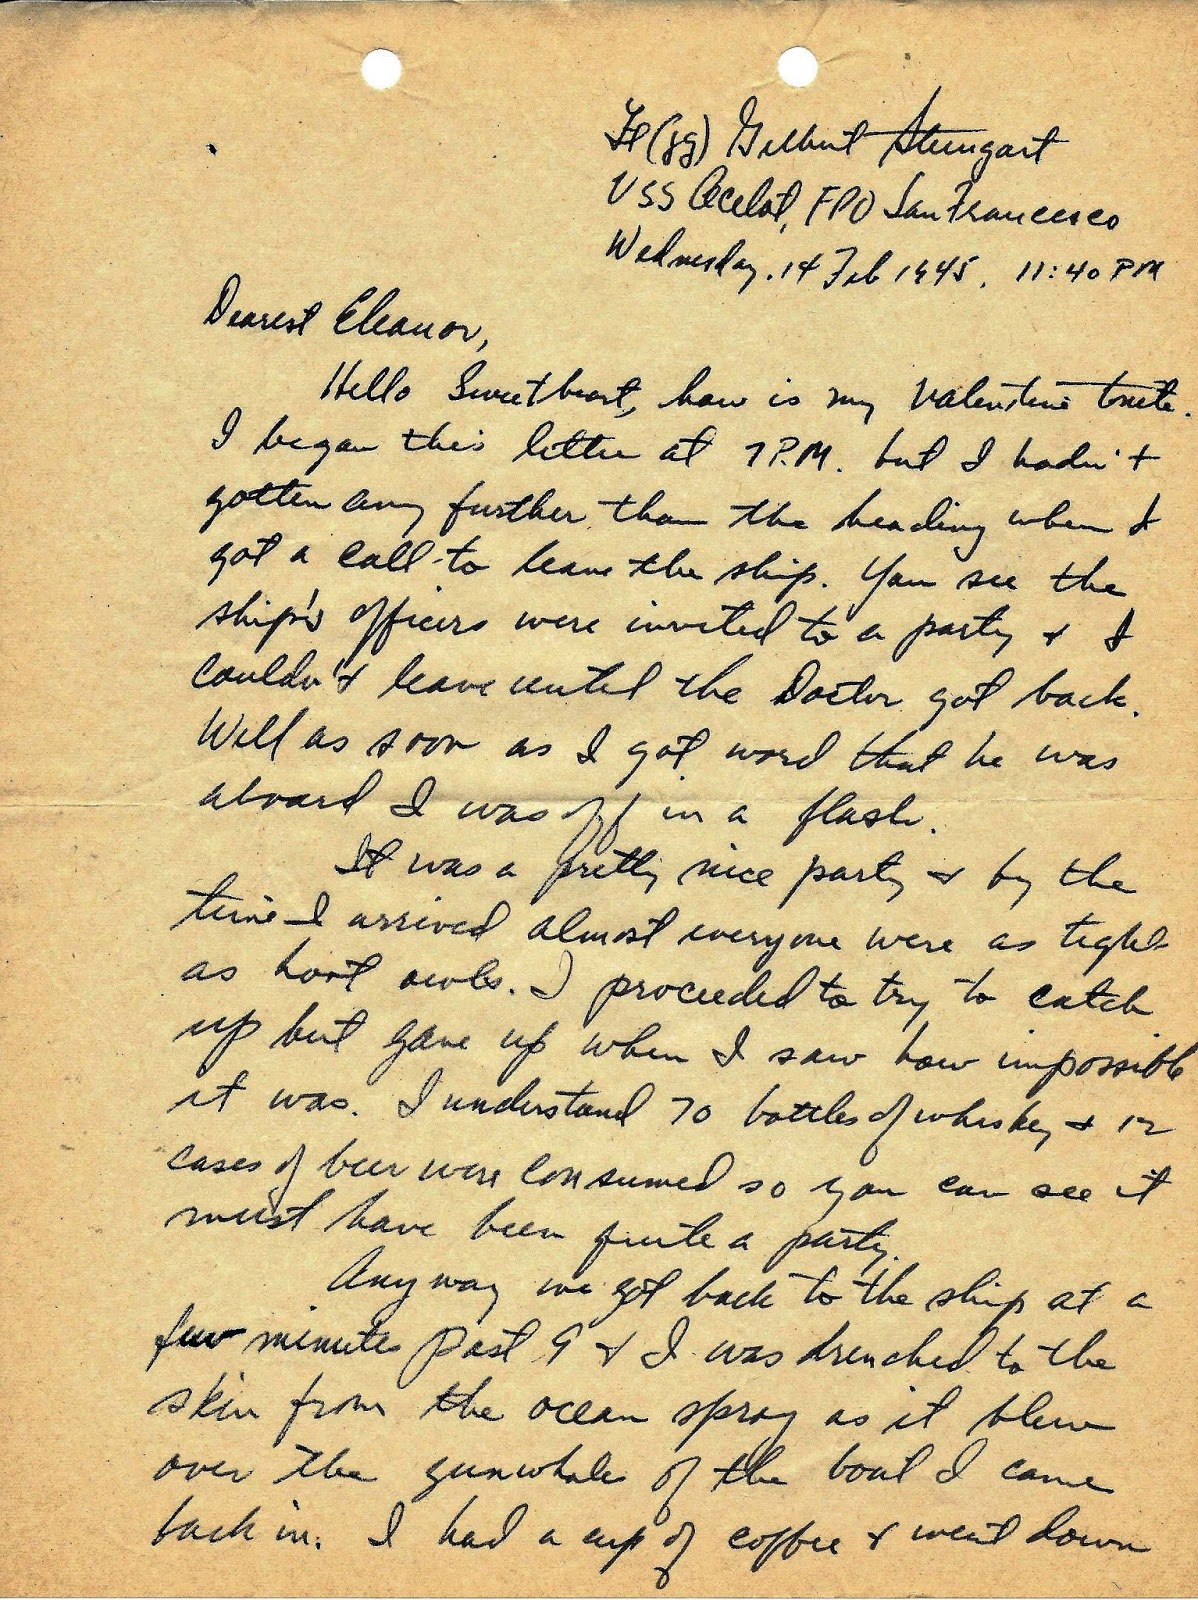 Lt (jg) Gilbert Steingart
USS Ocelot, FPO San Francisco
Wednesday. 14 Feb 1945. 11:40 PM
Dearest Eleanor,
Hello Sweetheart, how is my Valentine tonite.
I began this letter at 7 P.M. but I hadn't
gotten any further than the heading when I
got a call to leave the ship. You see the
ship's officers were invited to a party & I
couldn't leave until the Doctor got back.
Well as soon as I got word that he was
aboard I was off in a flash.
It was a pretty nice party & by the
time I arrived almost everyone were as tight
as hoot owls. I proceeded to try to catch
up but gave up when I saw how impossible
it was. I understand 70 bottles of whiskey & 12
cases of beer were consumed so you can see it
must have been quite a party.
Anyway we got back to the ship at a
few minutes past 9 & I was drenched to the
skin from the ocean spray as it blew
over the gunwhales of the boat I came
back in. I had a cup of coffee & went down